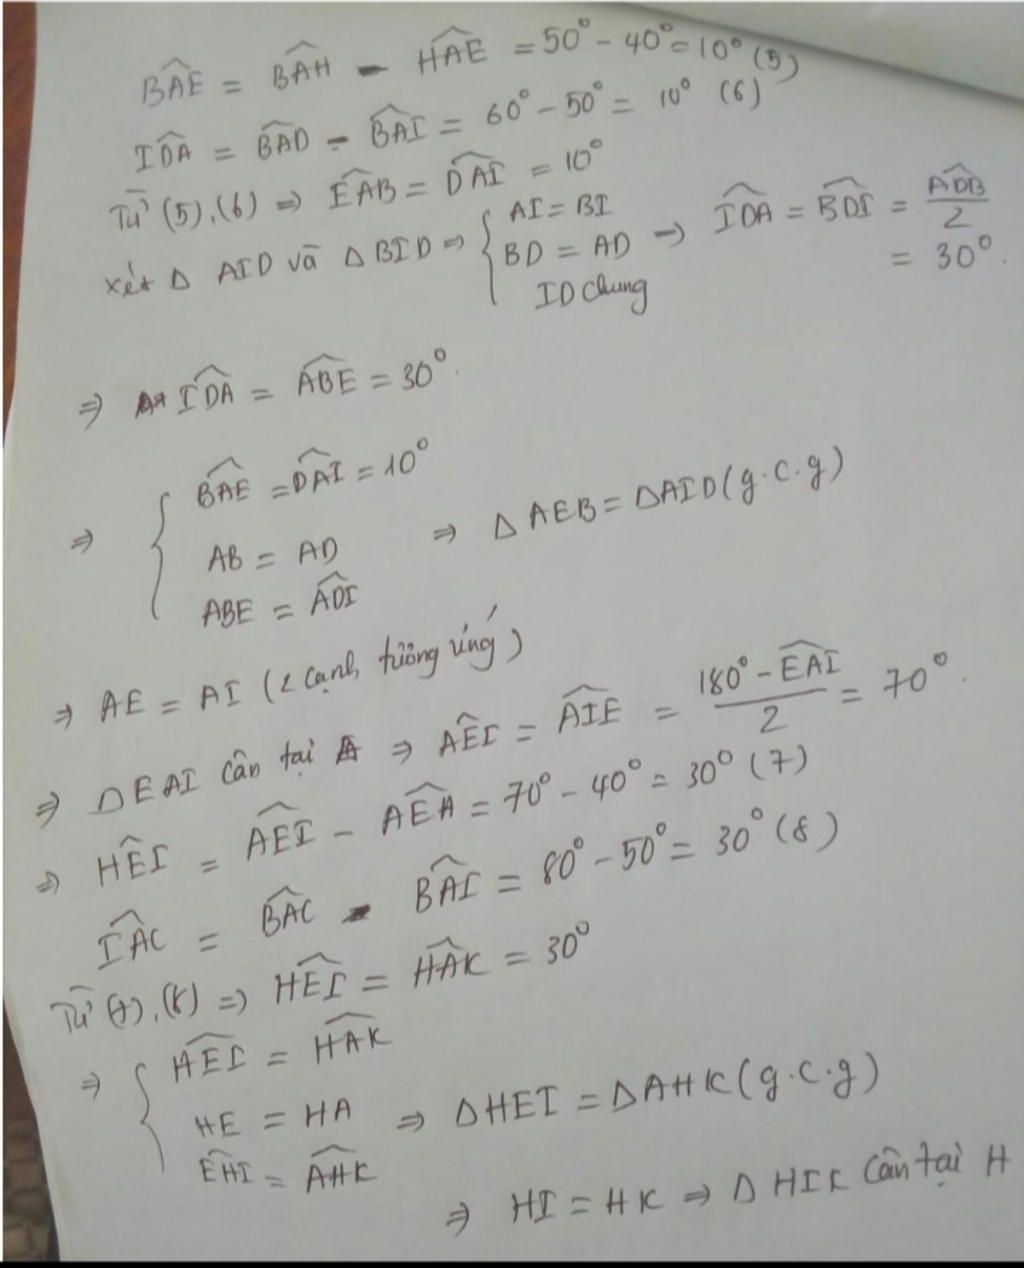 BAE^ = BAH^ - HAE^ = 50° - 40° = 10° (5)
IDA^ = BAD^ - BAI^ = 60° - 50° = 10° (6)
Từ (5), (6) => EAB^ = DAI^ = 10°
xét Δ AID và Δ BID => { AI = BI
BD = AD
ID chung
→ IDA^ = BDI^ = ADB^/2
= 30°.
=> IDA^ = ABE^ = 30°.
=> { BAE^ = DAI^ = 10°
AB = AD
ABE = ADI^
=> Δ AEB = ΔAID (g.c.g)
=> AE = AI (2 cạnh tương ứng)
=> ΔEAI cân tại A => AEI^ = AIE^ = (180° - EAI^)/2 = 70°.
=> HEI^ = AEI^ - AEH^ = 70° - 40° = 30° (7)
IAC^ = BAC^ - BAI^ = 80° - 50° = 30° (8)
Từ (7), (8) => HEI^ = HAK^ = 30°
=> { HEI^ = HAK^
HE = HA
EHI^ = AHK^
=> ΔHEI = ΔAHK (g.c.g)
=> HI = HK => Δ HIK cân tại H